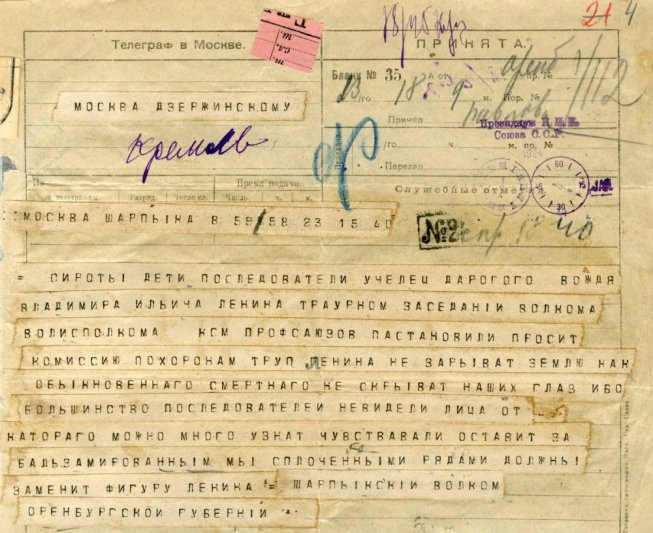 21 4
Телеграф в Москве.
ПРИНЯТА
Бланк № 35
го 18 9 м. Пор. №
МОСКВА ДЗЕРЖИНСКОМУ
Принял
Президиум Ц.И.К.
Союза С.С.Р.
кремль
го ч. м. пр. №
1924
Передал
На Время подачи.
Служебные отметки
Число. Число. ч. м.
МОСКВА ШАРЛЫКА 8 59/58 23 15 40
№2
40
= СИРОТЫ ДЕТИ ПОСЛЕДОВАТЕЛИ УЧЕЛЕЦ ДАРОГОГО ВОЖДЯ
ВЛАДИМИРА ИЛЬИЧА ЛЕНИНА ТРАУРНОМ ЗАСЕДАНІИ ВОЛКОМА
ВОЛИСПОЛКОМА КСМ ПРОФСАЮЗОВ ПАСТАНОВИЛИ ПРОСИТ
КОМИССИЮ ПОХОРОНАМ ТРУП ЛЕНИНА НЕ ЗАРЫВАТ ЗЕМЛЮ КАК
ОБЫКНОВЕННАГО СМЕРТНАГО НЕ СКРЫВАТ НАШИХ ГЛАЗ ИБО
БОЛЬШИНСТВО ПОСЛЕДОВАТЕЛЕЙ НЕВИДЕЛИ ЛИЦА ОТ
КАТОРАГО МОЖНО МНОГО УЗНАТ ЧУВСТВАВАЛИ ОСТАВИТ ЗА
БАЛЬЗАМИРОВАННЫМ МЫ СПЛОЧЕННЫМИ РЯДАМИ ДОЛЖНЫ
ЗАМЕНИТ ФИГУРУ ЛЕНИНА = ШАРЛЫКСКІЙ ВОЛКОМ
ОРЕНБУРГСКОЙ ГУБЕРНІИ